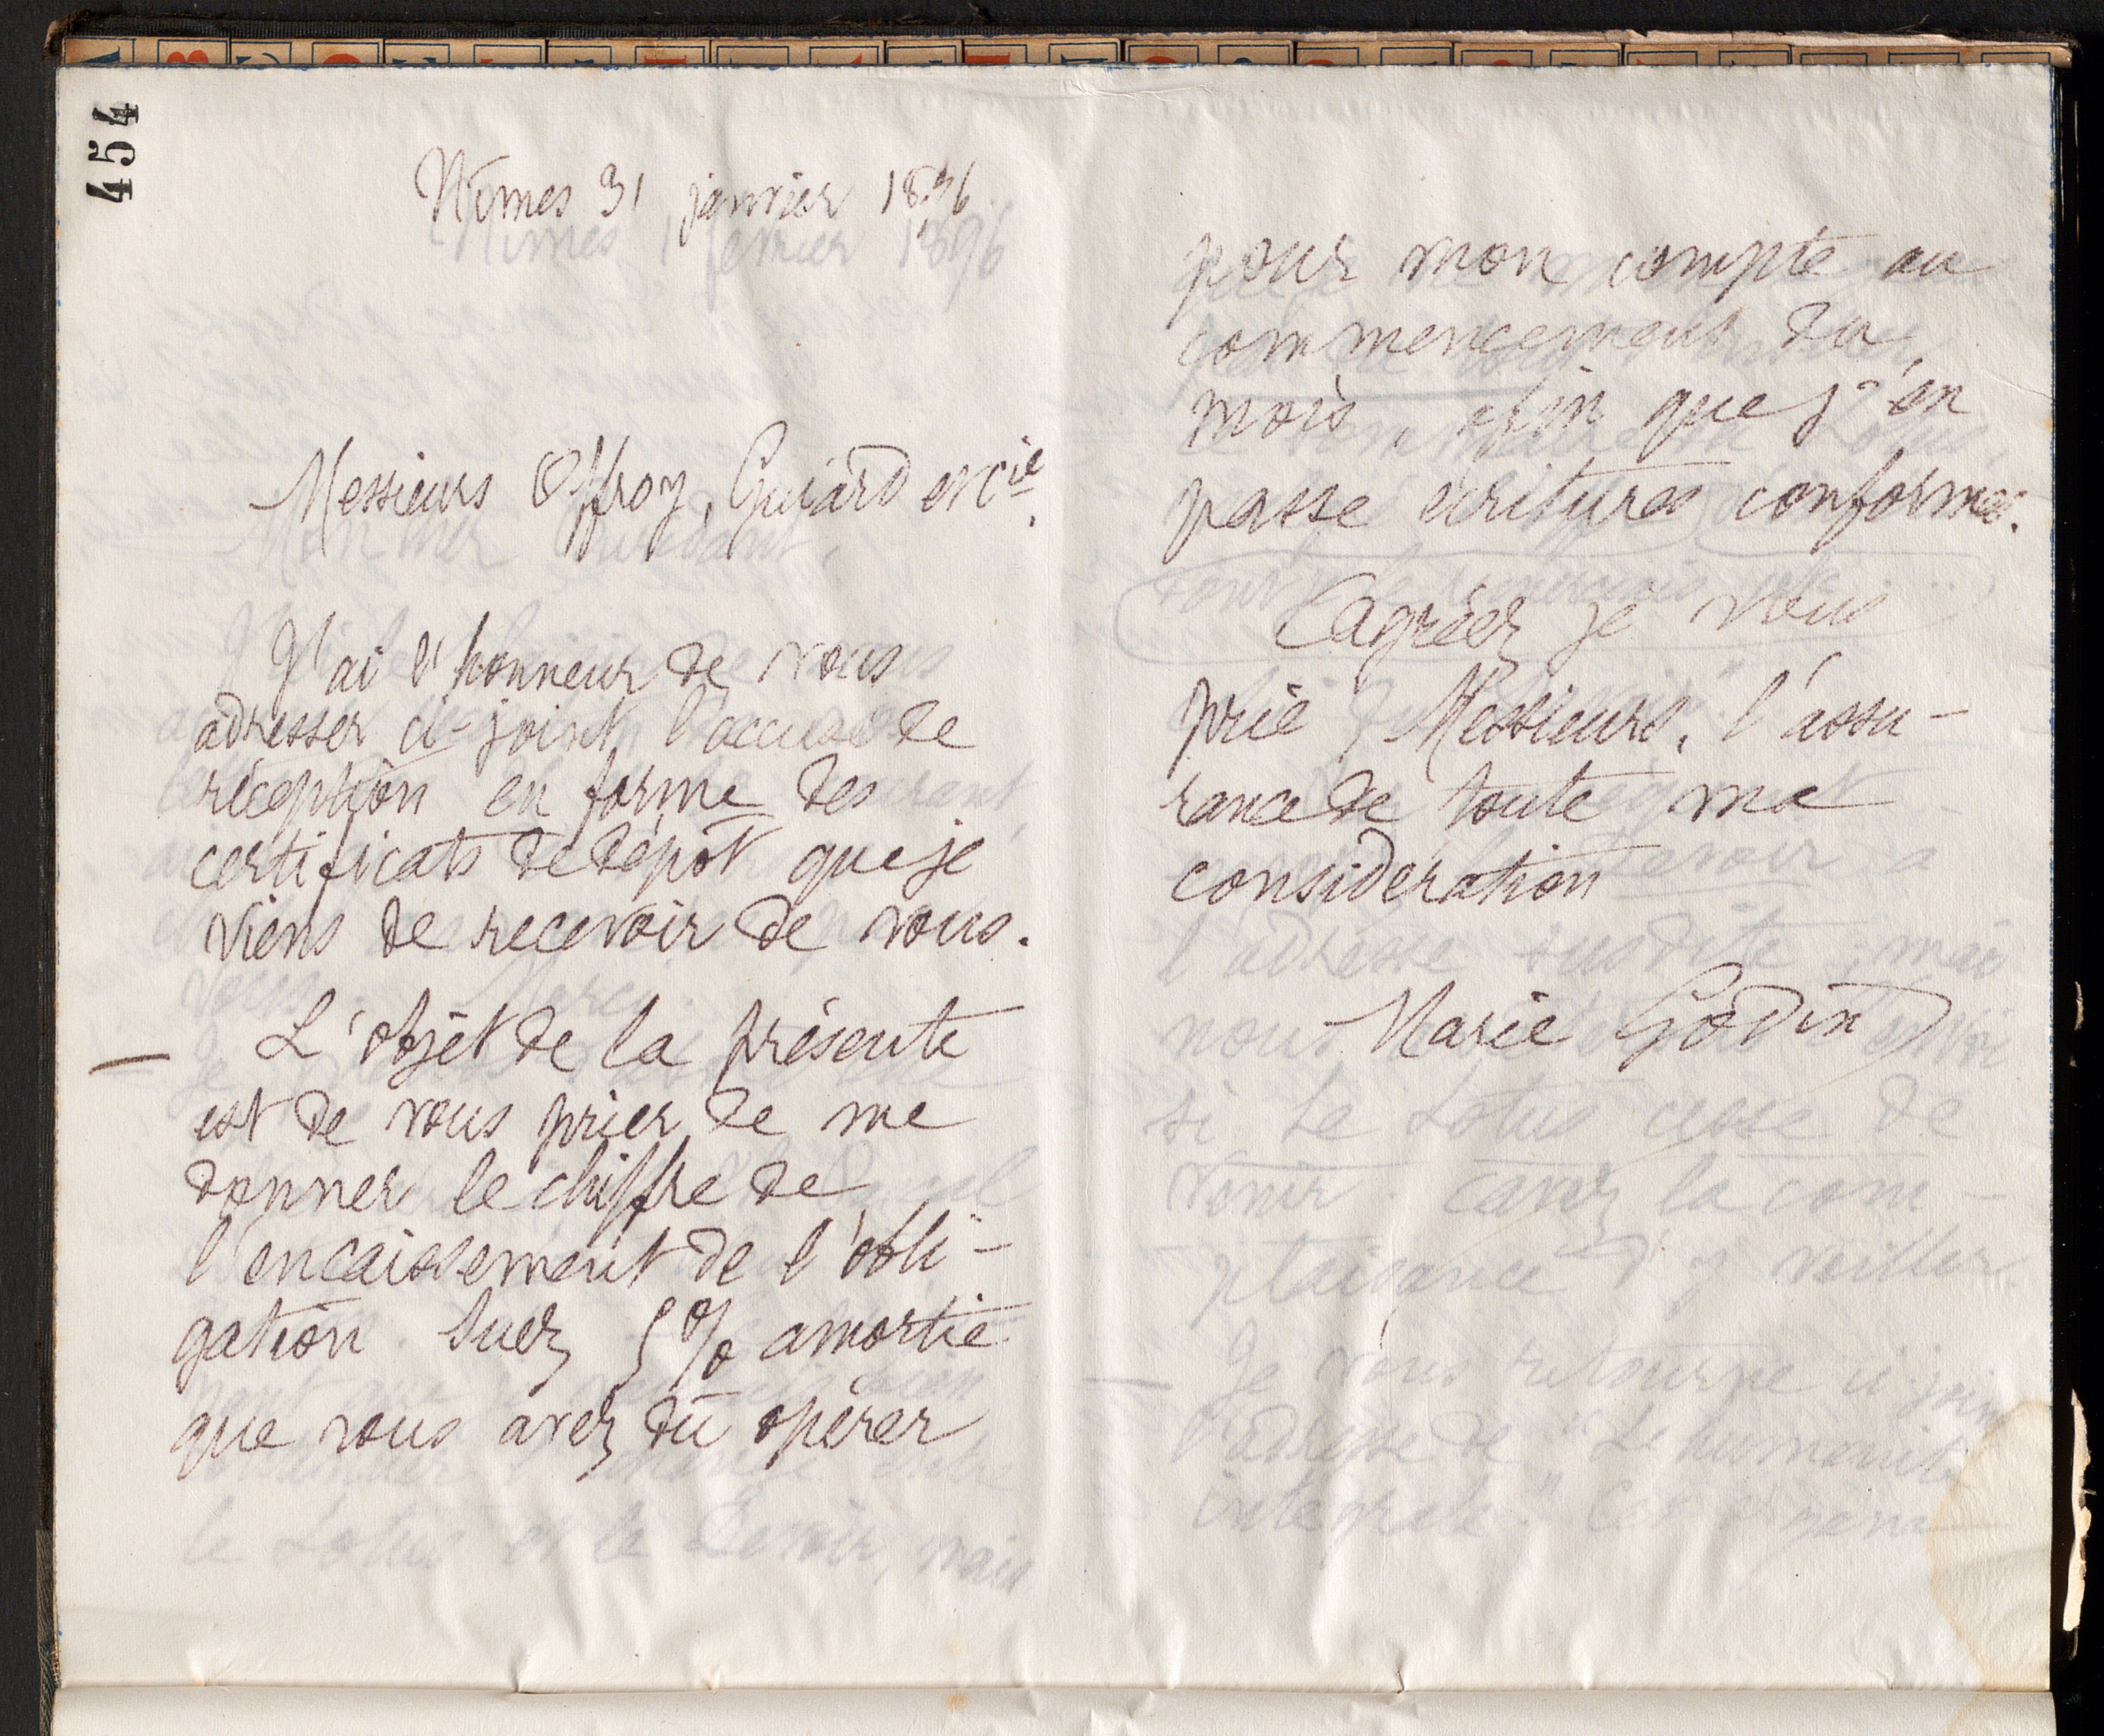 454
Nîmes 31 janvier 1896
Messieurs Offroy, Guiard et Cie.
J'ai l'honneur de vous
adresser ci-joint l'accusé de
réception en forme des
certificats de dépôt que je
viens de recevoir de vous.
— L'objet de la présente
est de vous prier de me
donner le chiffre de
l'encaissement de l'obli-
gation Suez 5% amortie
que vous avez dû opérer
pour mon compte au
commencement du
mois, afin que j'en
passe écritures conformes.
Agréez je vous
prie, Messieurs, l'assu-
rance de toute ma
considération
Marie Godin